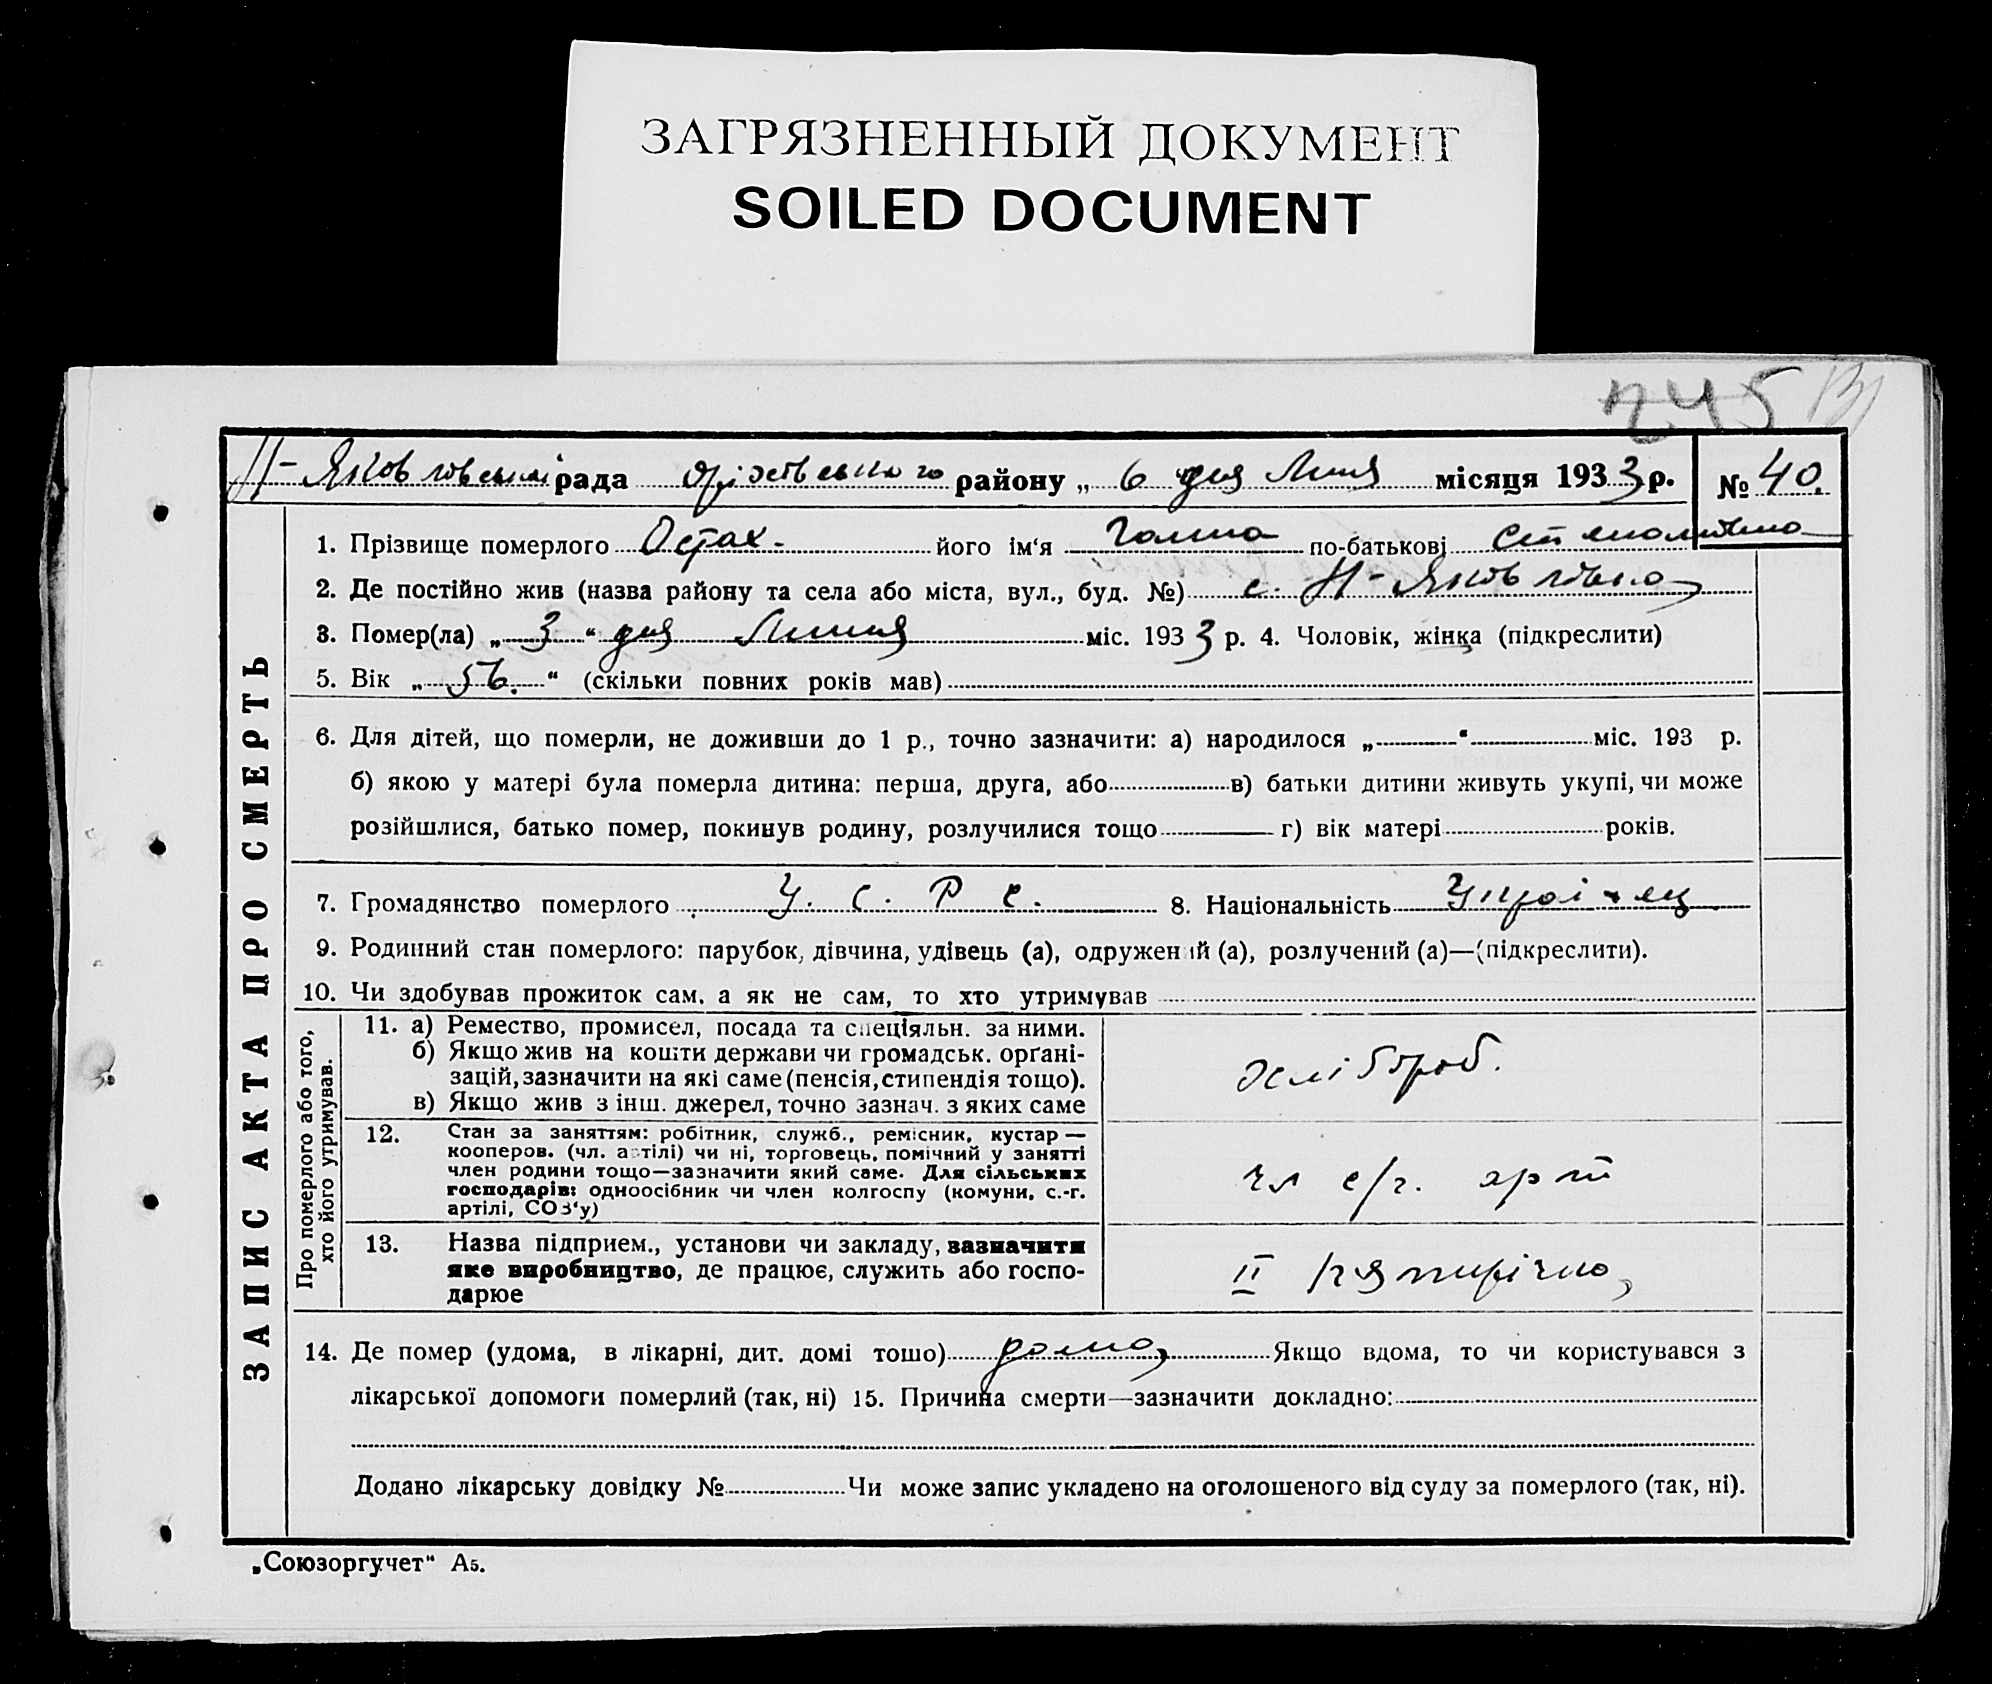 ЗАГРЯЗНЕННЫЙ ДОКУМЕНТ
SOILED DOCUMENT
245
Н-Яковлівська рада Оріхівського району „ 6 дня Липня місяця 1933 р. № 40.
1. Прізвище померлого Остах його ім'я Галина по-батькові
2. Де постійно жив (назва району та села або міста, вул., буд. №) с. Н-Яковлівка
3. Помер(ла) „ 3 “ дня Липня міс. 1933 р. 4. Чоловік, жінка (підкреслити)
5. Вік „ 56. “ (скільки повних років мав)
6. Для дітей, що померли, не доживши до 1 р., точно зазначити: а) народилося „ “ міс. 193 р.
б) якою у матері була померла дитина: перша, друга, або в) батьки дитини живуть укупі, чи може
розійшлися, батько помер, покинув родину, розлучилися тощо г) вік матері років.
7. Громадянство померлого У. С. Р. С. 8. Національність Українц
9. Родинний стан померлого: парубок, дівчина, удівець (а), одружений (а), розлучений (а)—(підкреслити).
10. Чи здобував прожиток сам, а як не сам, то хто утримував
Про померлого або того, хто його утримував.
11. а) Ремество, промисел, посада та спеціяльн. за ними.
б) Якщо жив на кошти держави чи громадськ. орґані-
зацій, зазначити на які саме (пенсія, стипендія тощо).
в) Якщо жив з інш. джерел, точно зазнач. з яких саме
хлібороб.
12. Стан за заняттям: робітник, служб., ремісник, кустар —
кооперов. (чл. артілі) чи ні, торговець, помічний у занятті
член родини тощо—зазначити який саме. Для сільських
господарів: одноосібник чи член колгоспу (комуни, с.-г.
артілі, СОЗ'у)
чл с/г. арт
13. Назва підприєм., установи чи закладу, зазначити
яке виробництво, де працює, служить або госпо-
дарює
ІІ п'ятирічка
14. Де помер (удома, в лікарні, дит. домі тошо) дома Якщо вдома, то чи користувався з
лікарської допомоги померлий (так, ні) 15. Причина смерти—зазначити докладно:
Додано лікарську довідку № Чи може запис укладено на оголошеного від суду за померлого (так, ні).
ЗАПИС АКТА ПРО СМЕРТЬ
„Союзоргучет" А5.